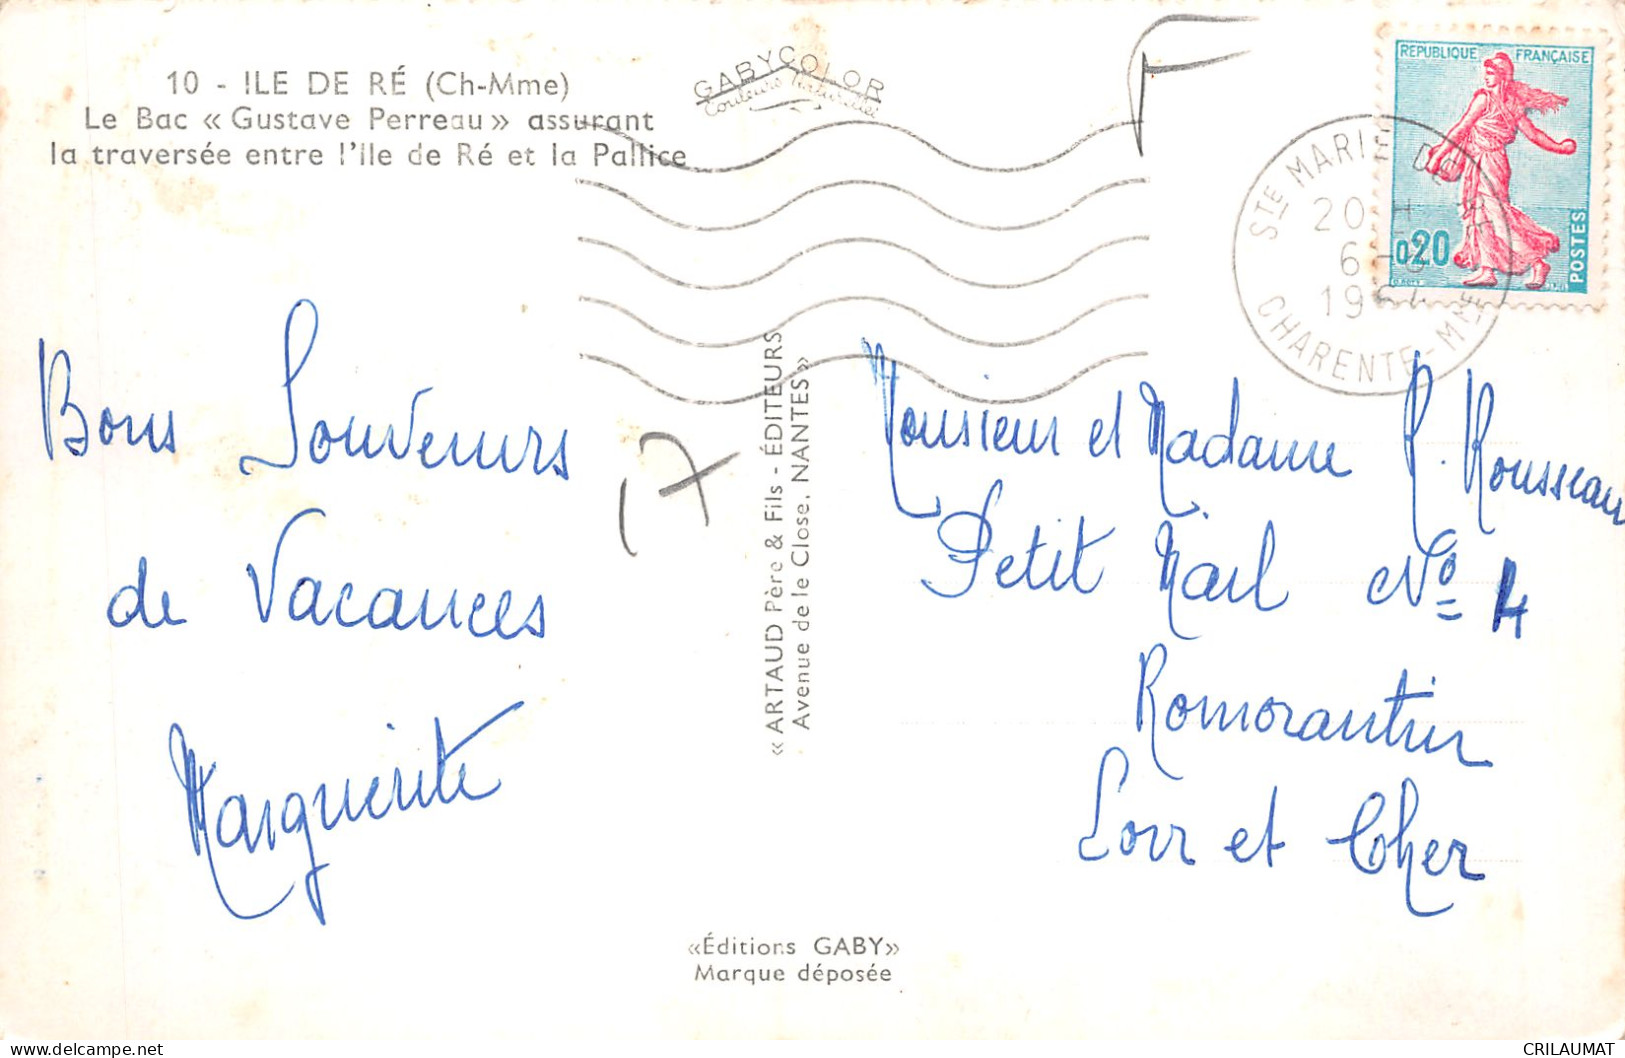 10 - ILE DE RÉ (Ch-Mme)
Le Bac « Gustave Perreau » assurant
la traversée entre l'Ile de Ré et la Pallice
GABYCOLOR
Couleurs Naturelles
REPUBLIQUE FRANÇAISE
0,20
POSTES
STE MARIE DE RE
20 H
6 -
19
CHARENTE-MME
Bons Souvenirs
de Vacances
Marguerite
17
«ARTAUD Père & Fils - ÉDITEURS
Avenue de le Close, NANTES»
Monsieur et Madame R. Rousseau
Petit Mail No 4
Romorantin
Loir et Cher
«Éditions GABY»
Marque déposée
CRILAUMAT